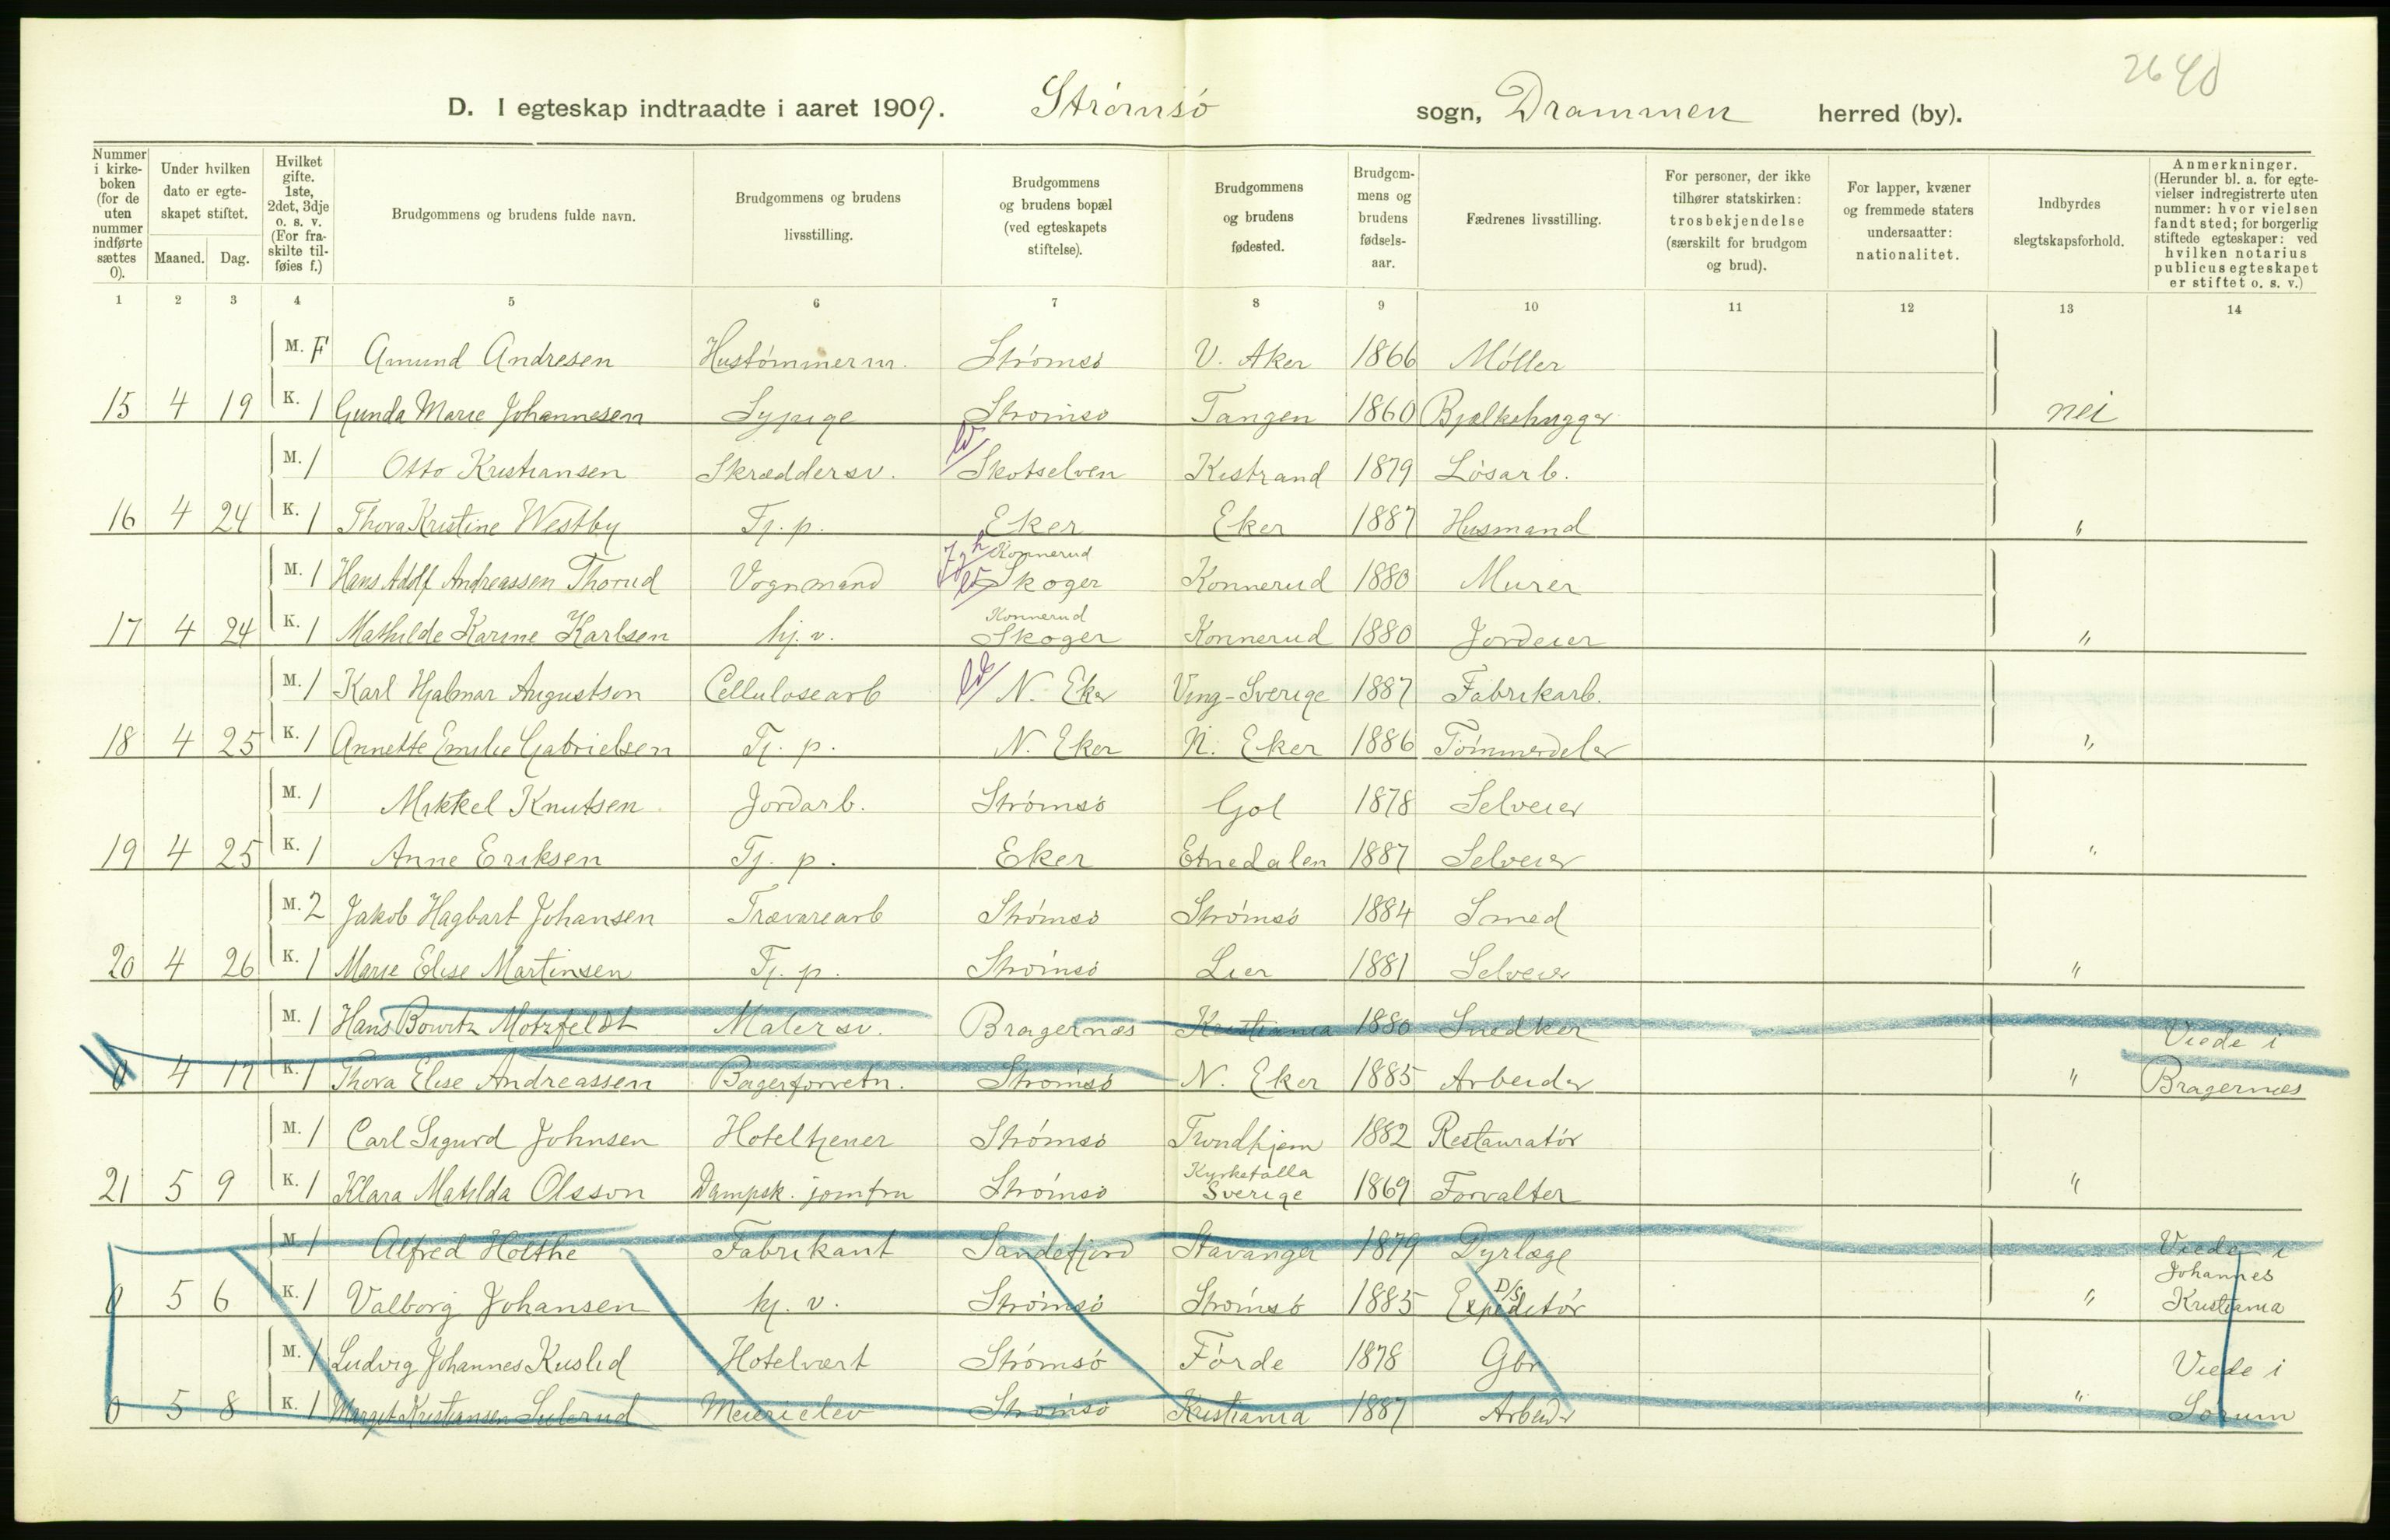 2640
D. I egteskap indtraadte i aaret 1909. Strømsø sogn, Drammen herred (by).
Nummer i kirke-boken (for de uten nummer indførte sættes 0). | Under hvilken dato er egte-skapet stiftet. Maaned. Dag. | Hvilket gifte. 1ste, 2det, 3dje o. s. v. (For fra-skilte til-føies f.) | Brudgommens og brudens fulde navn. | Brudgommens og brudens livsstilling. | Brudgommens og brudens bopæl (ved egteskapets stiftelse). | Brudgommens og brudens fødested. | Brudgom-mens og brudens fødsels-aar. | Fædrenes livsstilling. | For personer, der ikke tilhører statskirken: trosbekjendelse (særskilt for brudgom og brud). | For lapper, kvæner og fremmede staters undersaatter: nationalitet. | Indbyrdes slegtskapsforhold. | Anmerkninger. (Herunder bl. a. for egte-vielser indregistrerte uten nummer: hvor vielsen fandt sted; for borgerlig stiftede egteskaper: ved hvilken notarius publicus egteskapet er stiftet o. s. v.)
1 2 3 4 5 6 7 8 9 10 11 12 13 14
M. F Amund Andresen Hustømmerm. Strømsø V. Aker 1866 Møller
15 4 19 K. 1 Gunda Marie Johannesen Sypige Strømsø Tangen 1860 Bjælkehugger nei
M. 1 Otto Kristiansen Skræddersv. Skotselven Kistrand 1879 Løsarb.
16 4 24 K. 1 Thova Kristine Westby Tj. p. Eker Eker 1887 Husmand "
M. 1 Hans Adolf Andreassen Thorud Vognmand Konnerud Skoger Konnerud 1880 Murer
17 4 24 K. 1 Mathilde Karine Karlsen hj. v. Konnerud Skoger Konnerud 1880 Jordeier "
M. 1 Karl Hjalmar Augustson Cellulosearb N. Eker Ving-Sverige 1887 Fabrikarb.
18 4 25 K. 1 Annette Emilie Gabrielsen Tj. p. N. Eker N. Eker 1886 Tømmerdeler "
M. 1 Mikkel Knutsen Jordarb. Strømsø Gol 1878 Selveier
19 4 25 K. 1 Anne Eriksen Tj. p. Eker Etnedalen 1887 Selveier "
M. 2 Jakob Hagbart Johansen Trævarearb Strømsø Strømsø 1884 Smed
20 4 26 K. 1 Marie Elise Martinsen Tj. p. Strømsø Lier 1881 Selveier "
M. 1 Hans Bowitz Motzfeldt Malersv. Bragernæs Kristiania 1880 Snedker Viede i
0 4 17 K. 1 Thora Elise Andreassen Bagerforretn. Strømsø N. Eker 1885 Arbeider " Bragernæs
M. 1 Carl Sigurd Johnsen Hoteltjener Strømsø Trondhjem 1882 Restauratør
21 5 9 K. 1 Klara Matilda Olsson Dampsk. jomfru Strømsø Kyrkefalla Sverige 1869 Forvalter "
M. 1 Alfred Holthe Fabrikant Sandefjord Stavanger 1879 Dyrlæge Viede i
0 5 6 K. 1 Valborg Johansen hj. v. Strømsø Strømsø 1885 D/S Expeditør " Johannes Kristiania
M. 1 Ludvig Johannes Kuslid Hotelvært Strømsø Førde 1878 Gbr Viede i
0 5 8 K. 1 Margit Kristiansen Sulerud Meierielev Strømsø Kristiania 1887 Arbeider " Sørum